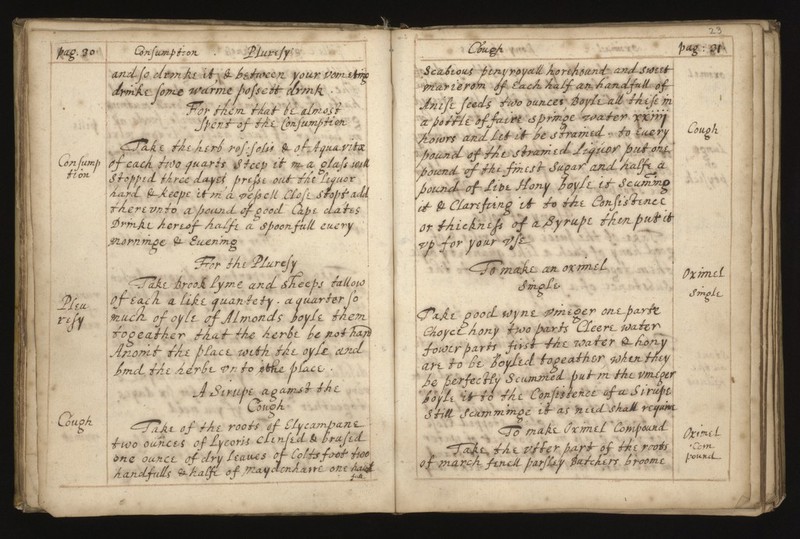 pag. 30 Consumption . Pluresy
and so drinke it, & between your vomiting
drinke some warme possett drink .
For them that be almost
spent of the Consumption
Consump
tion
Take the herb ros solis & of Aquavitæ
of each two quarts steep it in a glass well
stopped three dayes presse out the liquor
hard & keepe it in a vessell Close stopt add
thereunto a pound of good Cape dates
Drinke hereof halfe a spoonfull every
morninge & Evening
For the Pluresy
Pleu
resy
Take brook lyme and sheeps tallow
of Each a like quantety . a quarter so
much of oyle of Almonds boyle them
togeather that the herbe be not hard
Anoint the place with the oyle and
bind the herbe unto the place .
A Sirupe against the
Cough
Cough
Take of the roots of Elycampane
two ounces of Lycoris clensed & brused
one ounce of dry leaves of Colts foot two
handfulls & halfe of maydenhaire one hand
full
23
Cough pag: 31
Scabious penyroyall horehound and sweet
marierom of Each half an handfull of
Anise seeds two ounces Boyle all these in
a pottle of faire springe water xxiiij
Cough
howrs and let it be strained - to Every
pound of the strained Liquor put one
pound of the finest Sugar and halfe a
pound of live Hony boyle it scuming
it & Clarefying it to the Consistence
or thickness of a Syrupe then put it
up for your use
To make an oximel
Single
Oximel
Single
Take good wyne vineger one parte
Choyce hony two parts Cleere water
fower parts first the water & hony
are to be Boyled togeather when they
be perfectly Scummed put in the vineger
boyle it to the Consistence of a Sirupe
still scumminge it as need shall require
To make Oximel Compound
Oximel
Com
pound
Take the utter part of the roots
of march fenell parsley Butchers broome